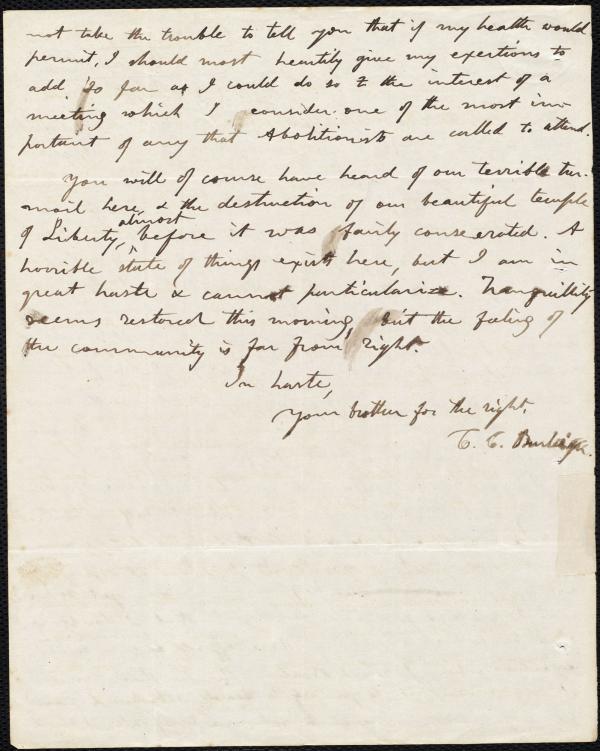 not take the trouble to tell you that if my health would
permit, I should most heartily give my exertions to
add so far as I could do so to the interest of a
meeting which I consider one of the most im-
portant of any that Abolitionists are called to attend.
You will of course have heard of our terrible tur-
moil here, & the destruction of our beautiful temple
of Liberty, almost before it was fairly consecrated. A
horrible state of things exists here, but I am in
great haste & cannot particularize. Tranquillity
seems restored this morning, but the feeling of
the community is far from right.
In haste,
Your brother for the right,
C. C. Burleigh.